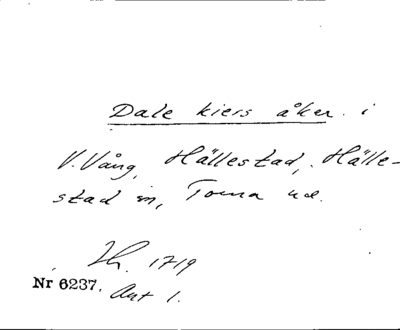 Dale kiers åker i
V. Vång, Hällestad, Hälle-
stad sn, Torna hd.
Lh. 1719
Nr 6237. Avt 1.